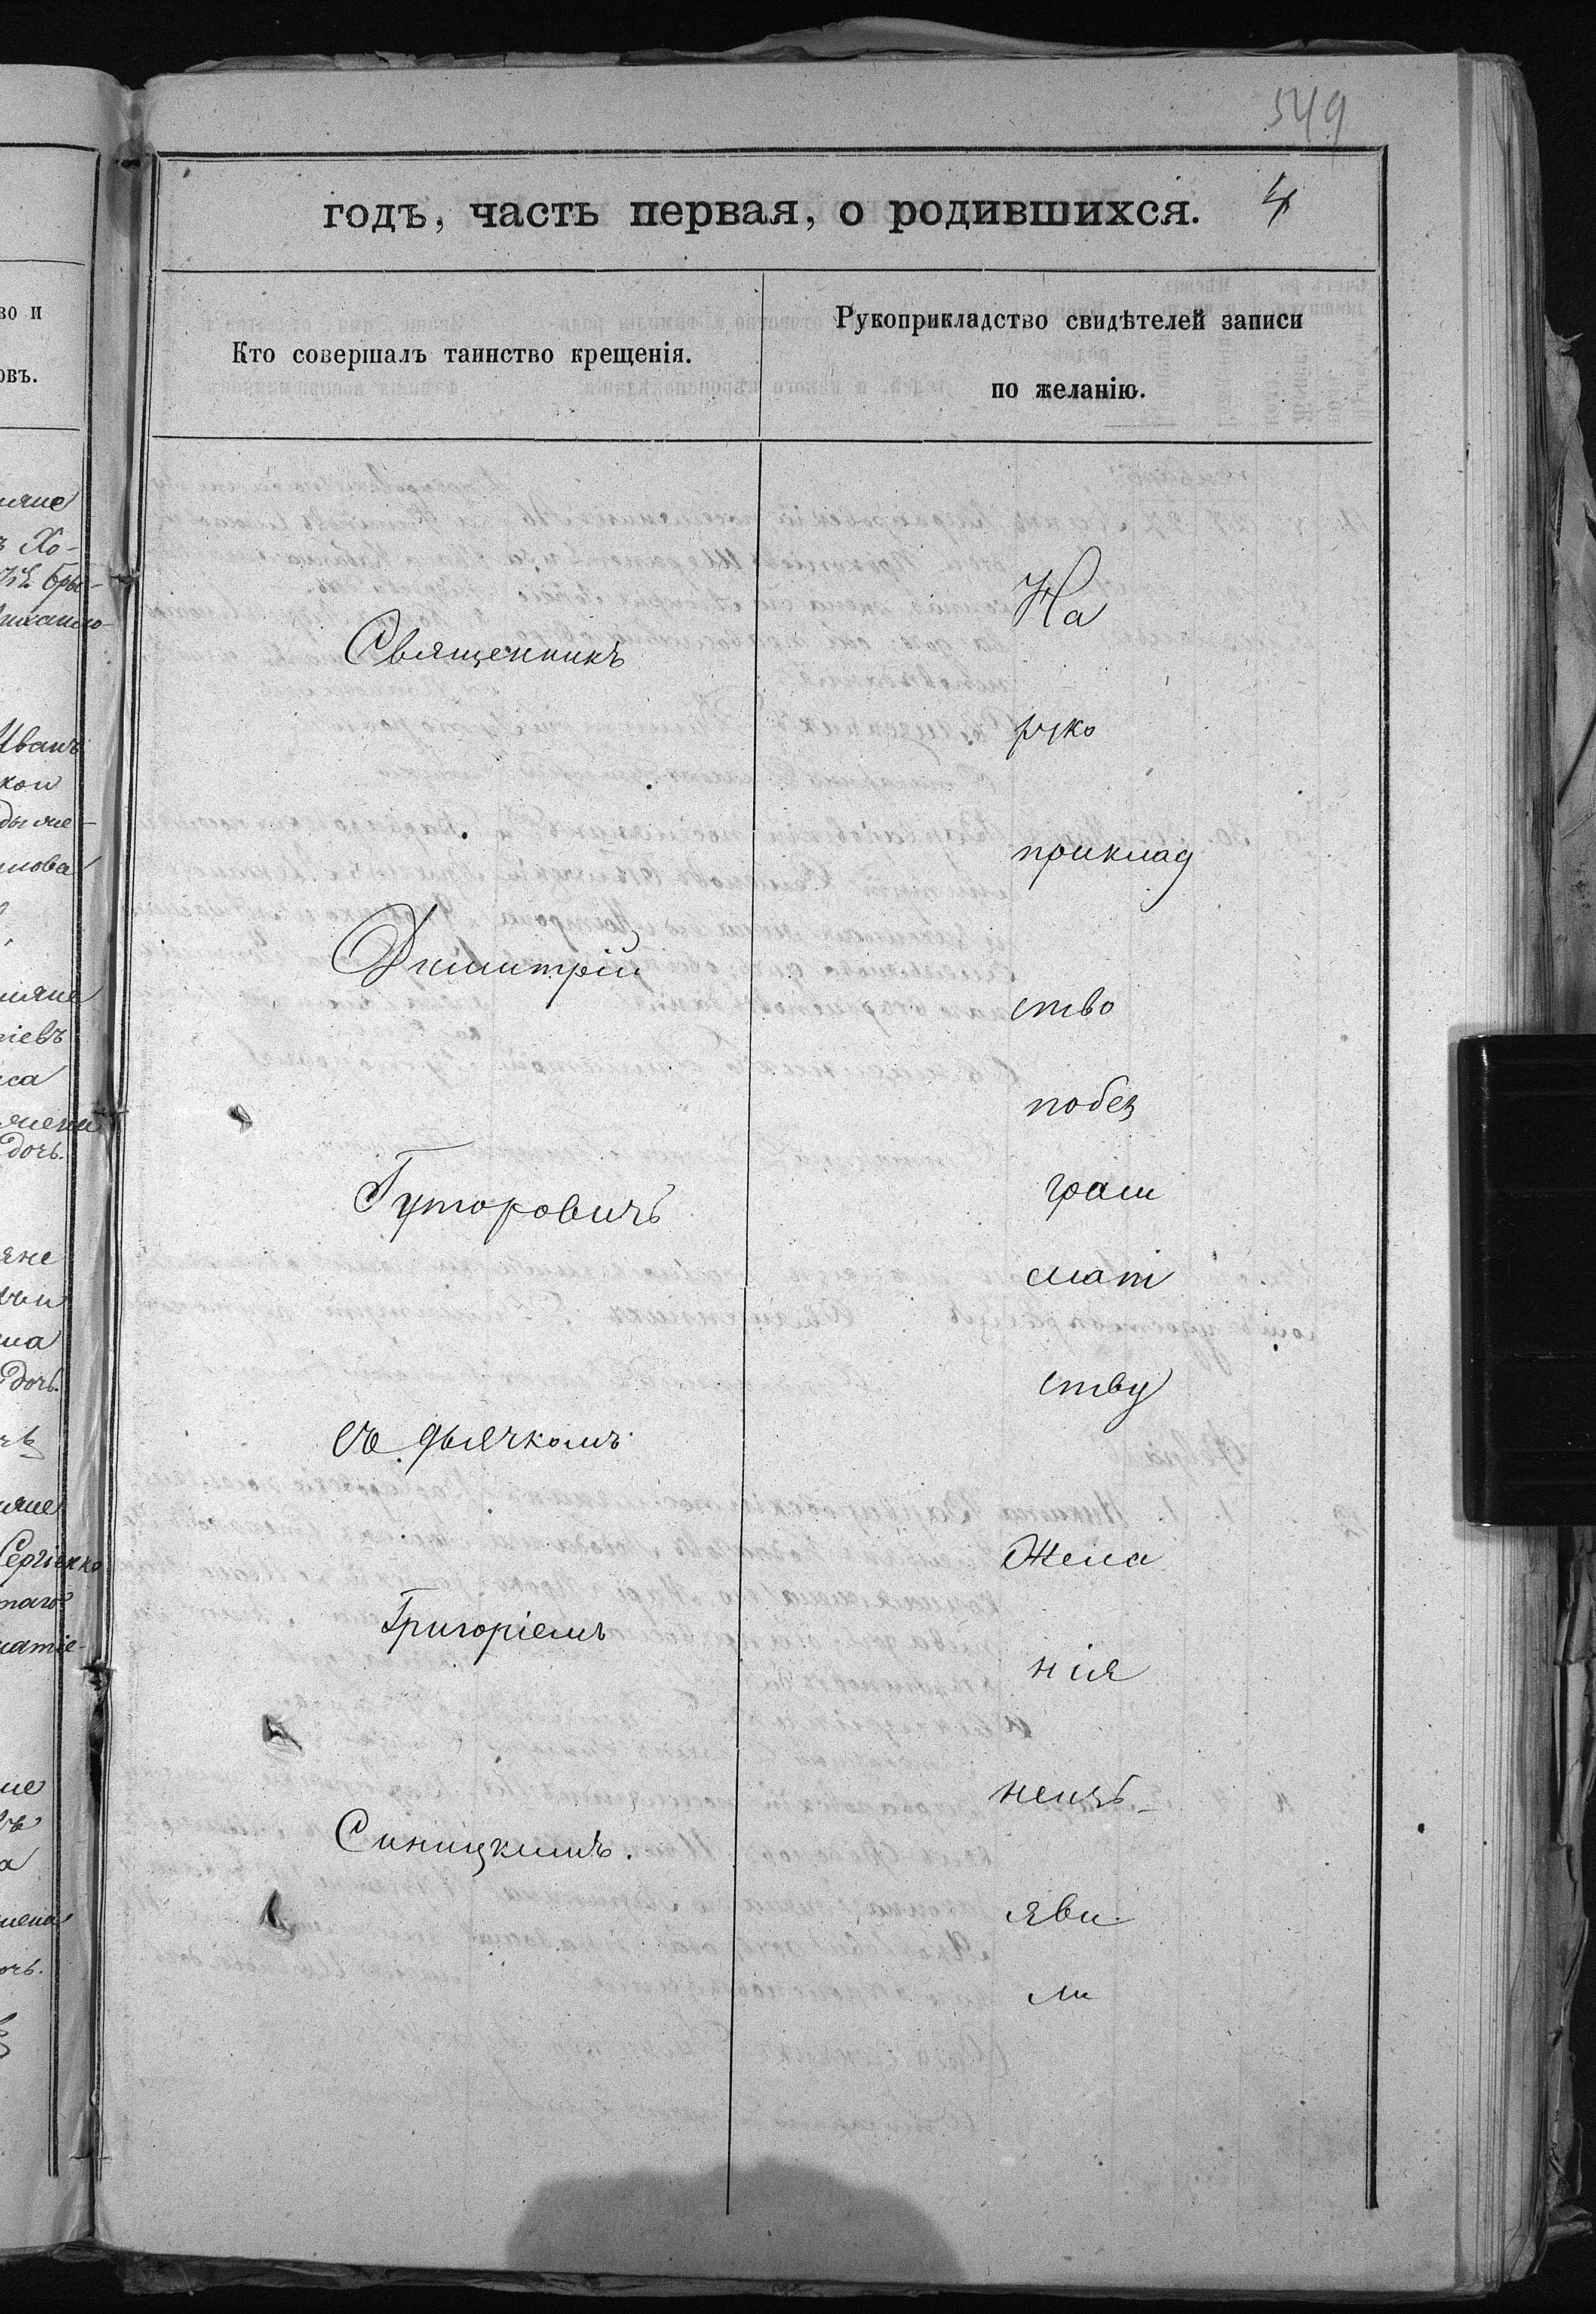 549
годъ, часть первая, о родившихся. 4
Кто совершалъ таинство крещенія.
Рукоприкладство свидѣтелей записи
по желанію.
Священникъ
Димитрій
Гуторовичъ
съ дьячкомъ
Григоріемъ
Синицкимъ.
На
руко
приклад
ство
по без
грам
мат
ству
жела
нія
не изъ-
яви
ли
во и
овъ.
Хо-
Иванъ
дочь.
дочь.
Сергіенко